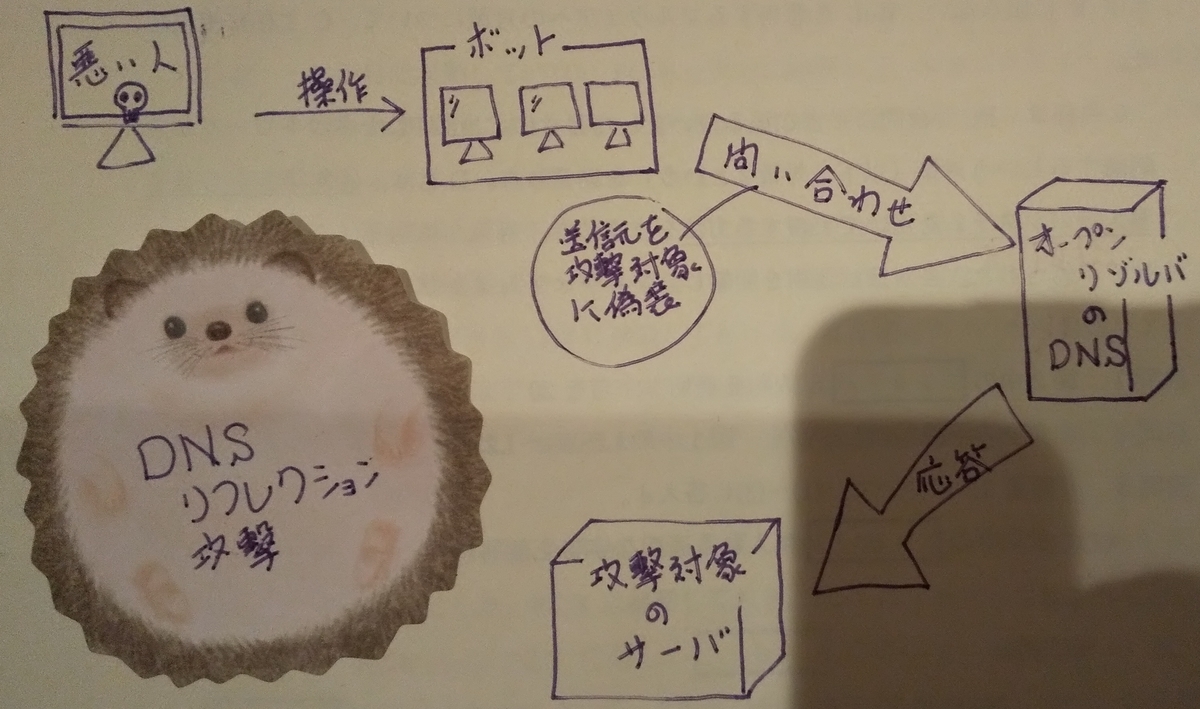 悪い人
操作
ボット
問い合わせ
送信元を
攻撃対象
に偽装
オープン
リゾルバ
の
DNS
応答
攻撃対象
の
サーバ
DNS
リフレクション
攻撃